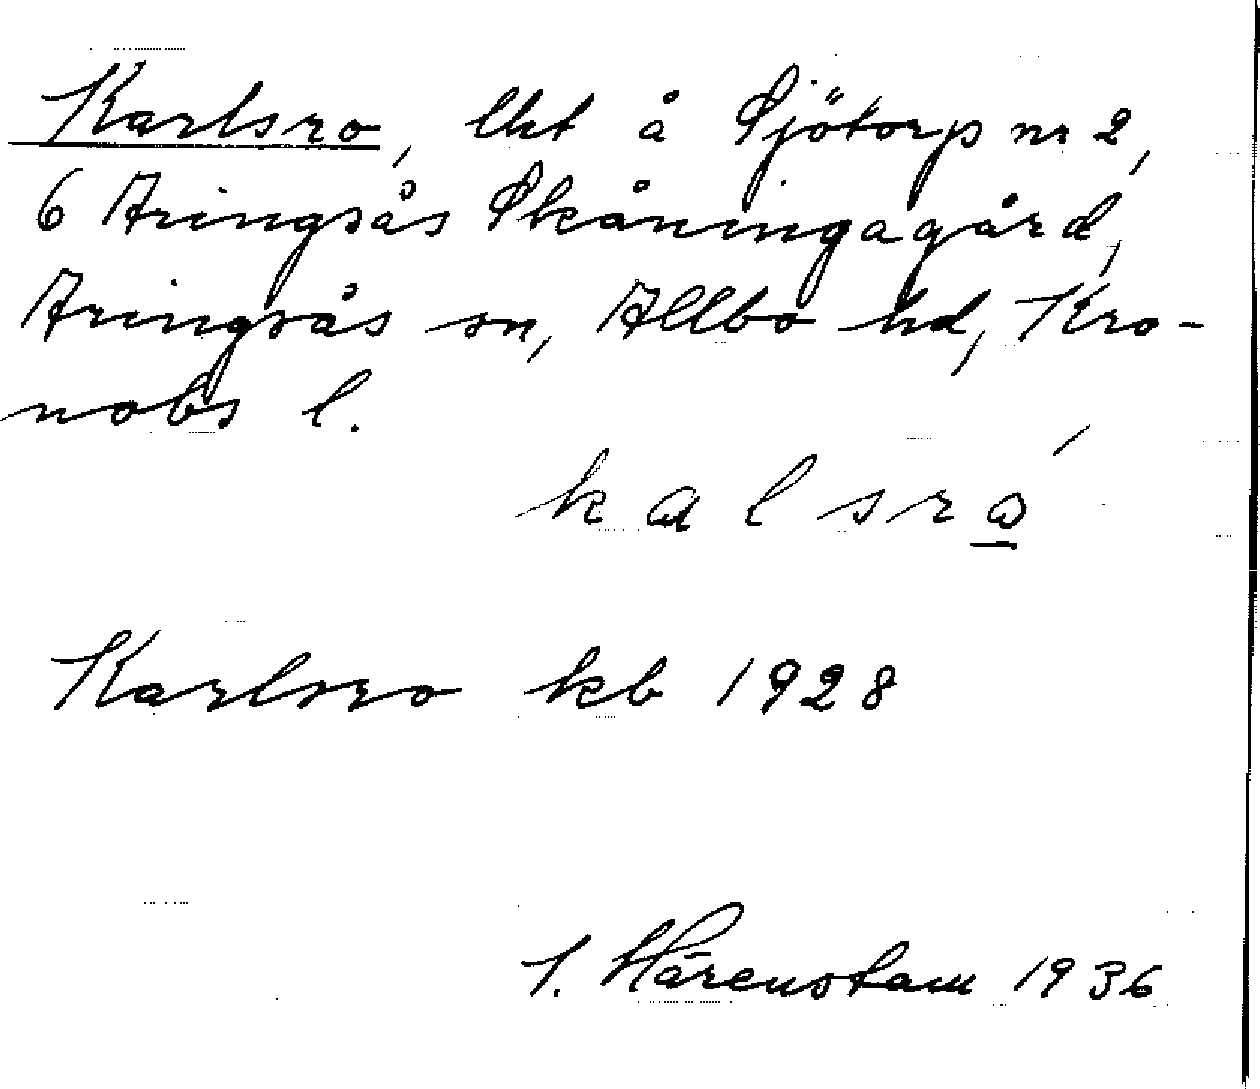 Karlsro, lht å Sjötorp nr 2,
6 Aringsås Skåningagård,
Aringsås sn, Allbo hd, Kro-
nobs l.
kalsro ́
Karlsro kb 1928
Härenstam 1936